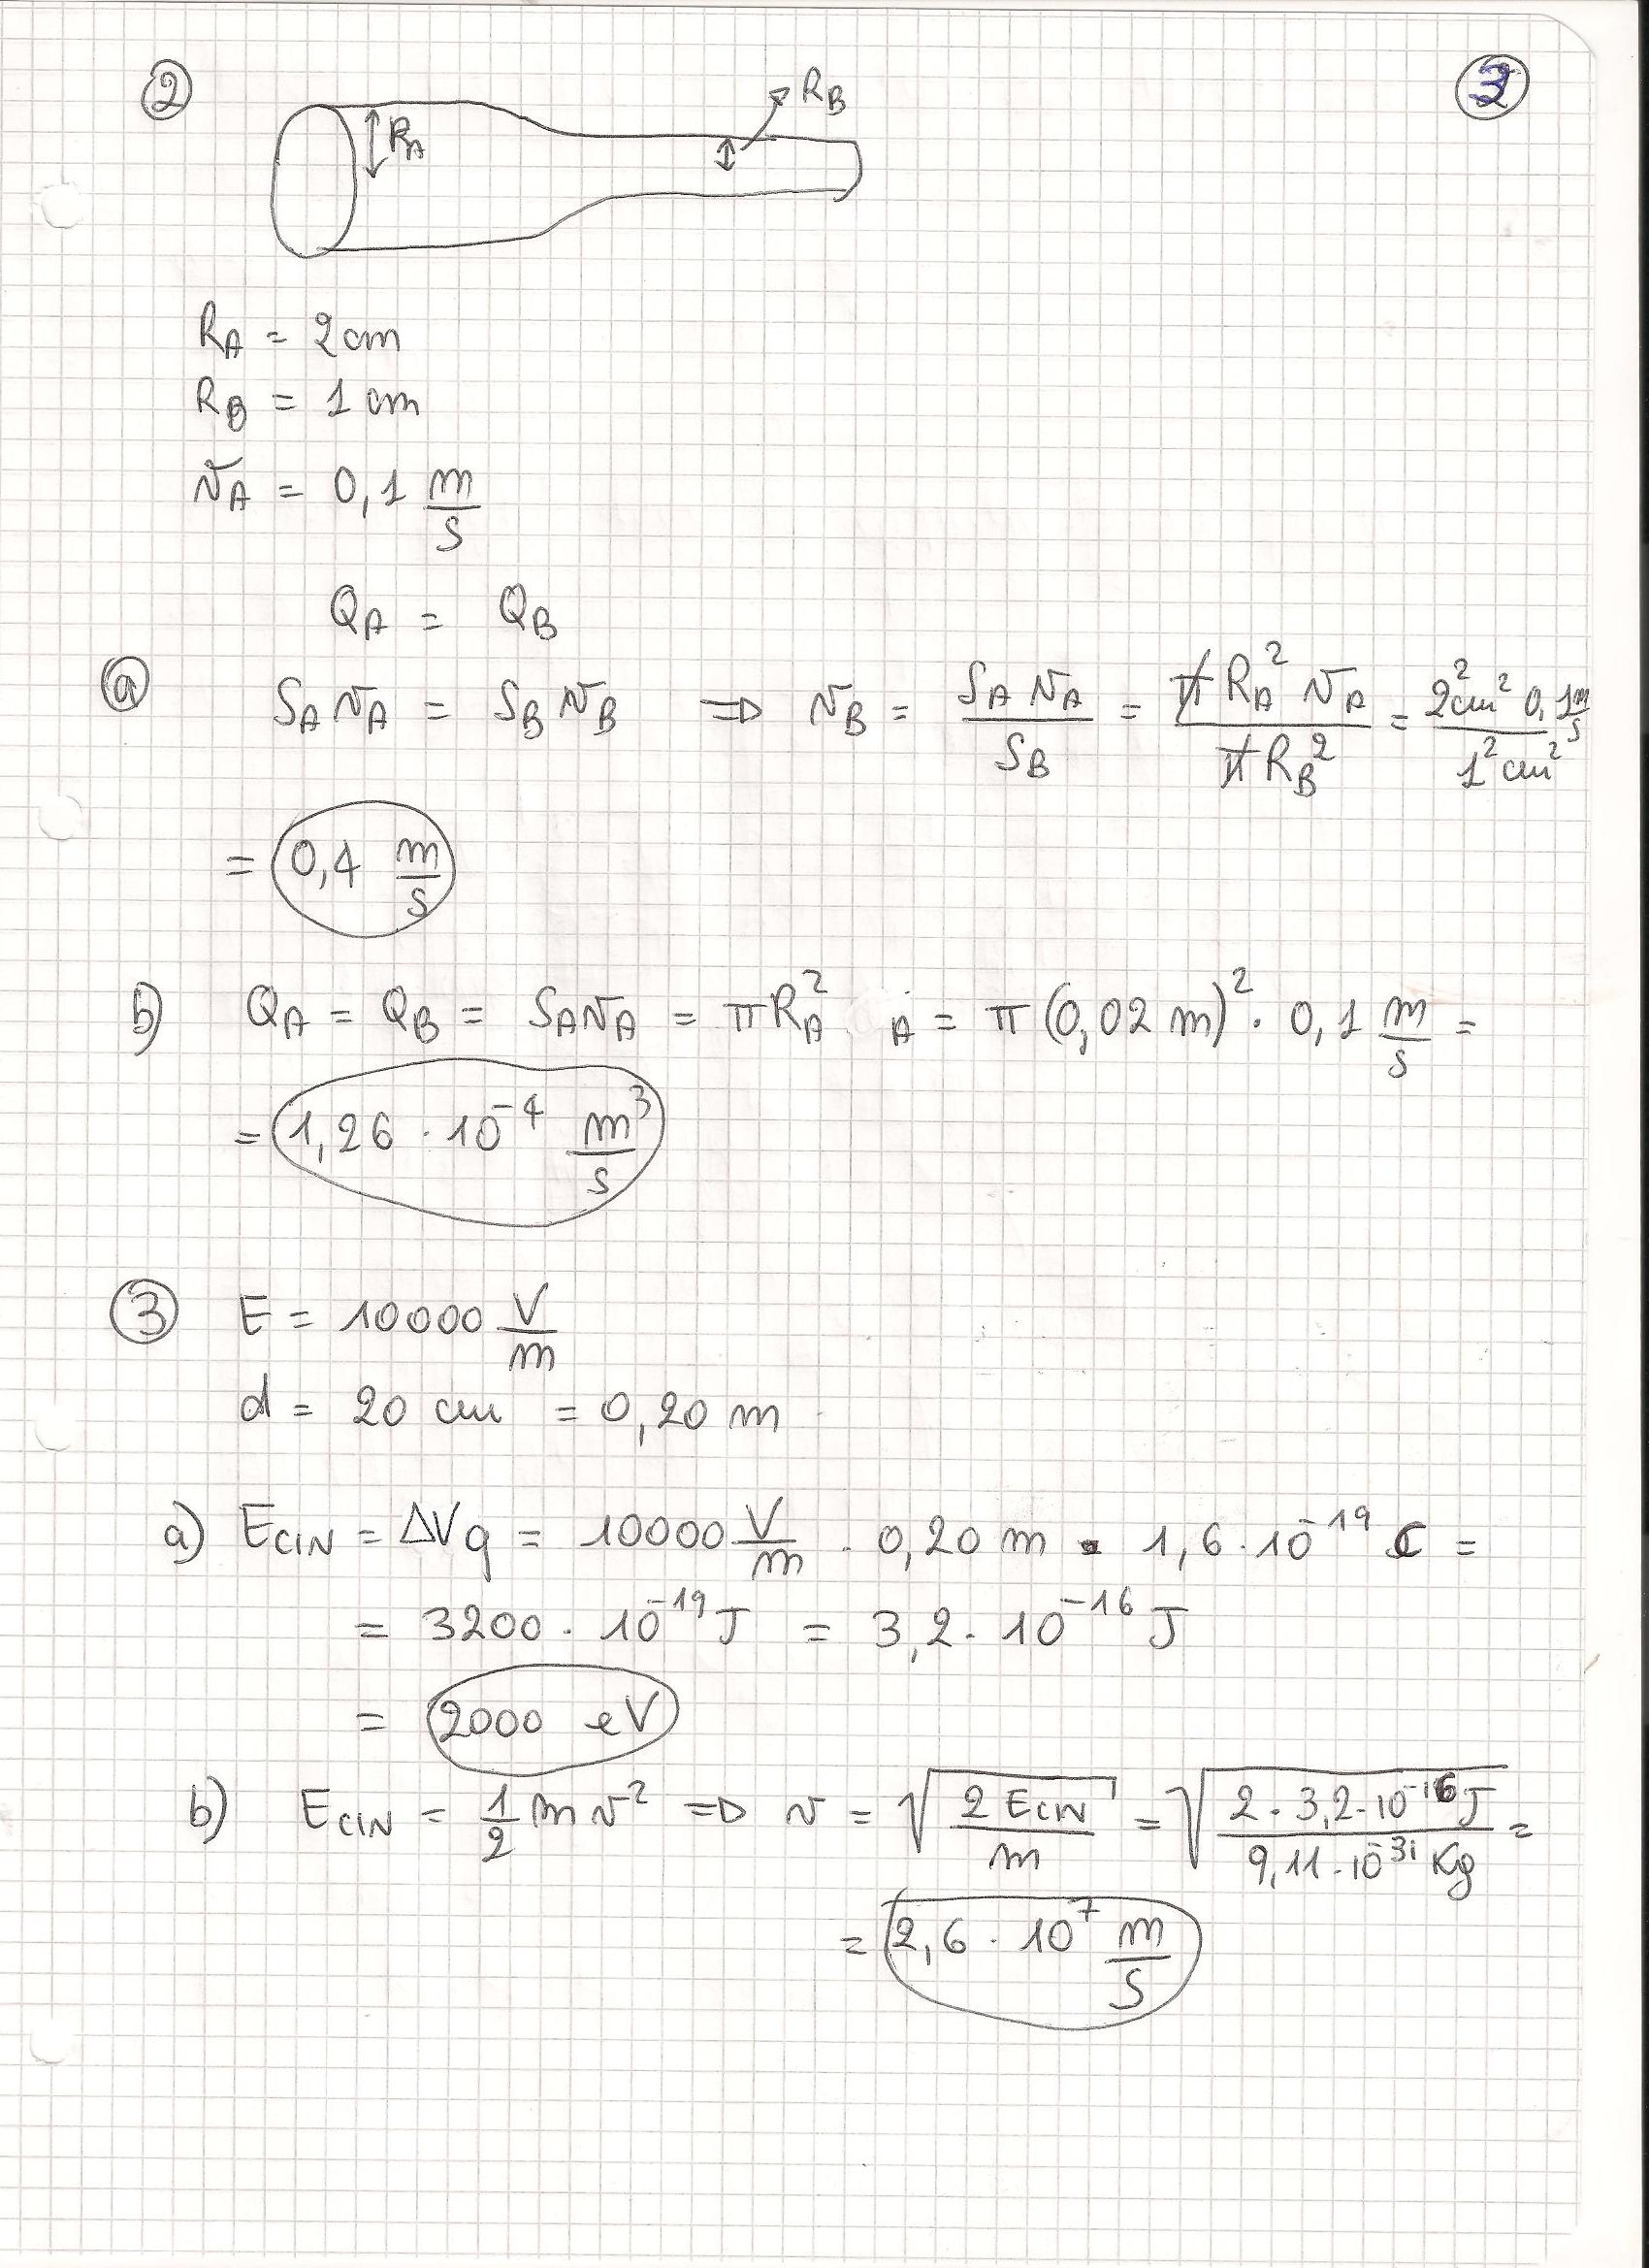 ② ③
R_A R_B
R_A = 2 cm
R_B = 1 cm
v_A = 0,1 m/s
Q_A = Q_B
ⓐ S_A v_A = S_B v_B ⇒ v_B = S_A v_A / S_B = π R_A² v_A / π R_B² = 2² cm² 0,1 m/s / 1² cm²
= 0,4 m/s
b) Q_A = Q_B = S_A v_A = π R_A² A = π (0,02 m)² · 0,1 m/s =
= 1,26 · 10⁻⁴ m³/s
③ E = 10000 V/m
d = 20 cm = 0,20 m
a) E_CIN = ΔV q = 10000 V/m · 0,20 m · 1,6 · 10⁻¹⁹ C =
= 3200 · 10⁻¹⁹ J = 3,2 · 10⁻¹⁶ J
= 2000 eV
b) E_CIN = 1/2 m v² ⇒ v = √(2 E_CIN / m) = √(2 · 3,2 · 10⁻¹⁶ J / 9,11 · 10⁻³¹ Kg) =
= 2,6 · 10⁷ m/s